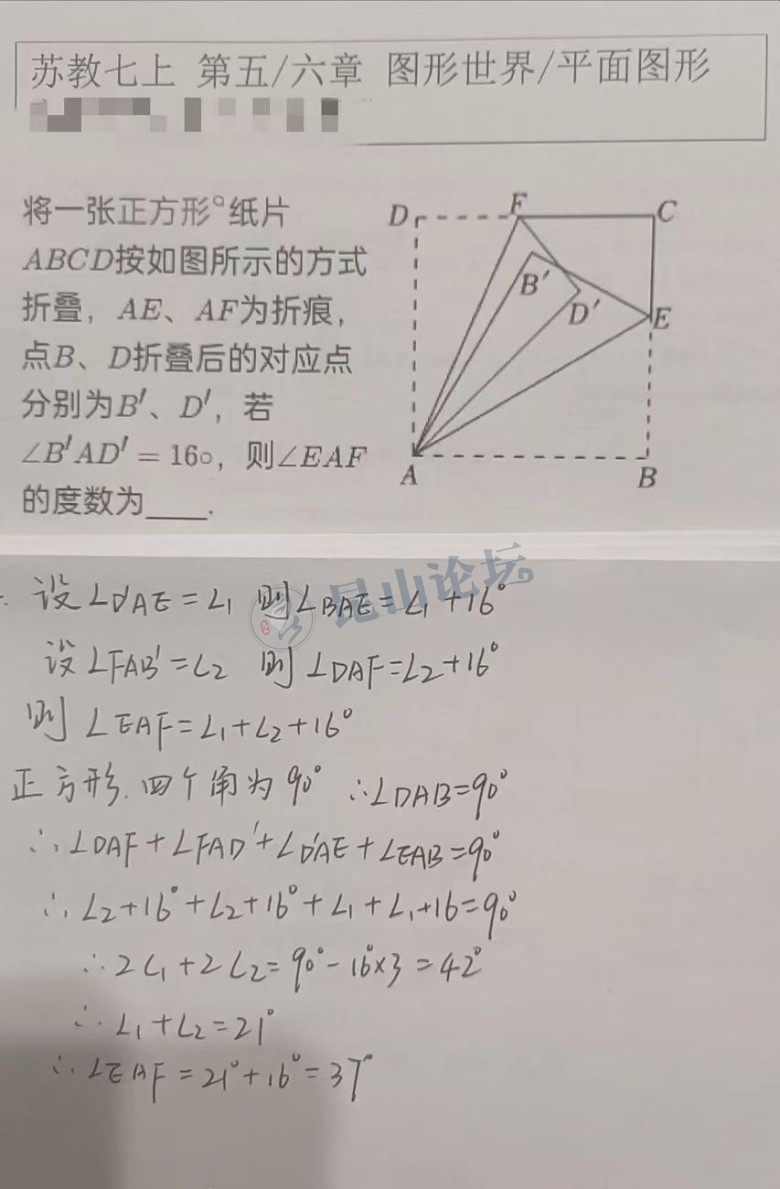 苏教七上 第五/六章 图形世界/平面图形
将一张正方形°纸片
ABCD按如图所示的方式
折叠，AE、AF为折痕，
点B、D折叠后的对应点
分别为B′、D′，若
∠B′AD′ = 16∘，则∠EAF
的度数为____.
D
F
C
B′
D′
E
A
B
昆山论坛
设∠D′AE=∠1 则∠BAE=∠1+16°
设∠FAB′=∠2 则∠DAF=∠2+16°
则 ∠EAF=∠1+∠2+16°
正方形.四个角为90° ∴∠DAB=90°
∴∠DAF+∠FAD′+∠D′AE+∠EAB=90°
∴∠2+16°+∠2+16°+∠1+∠1+16=90°
∴2∠1+2∠2=90°-16°×3=42°
∴∠1+∠2=21°
∴∠EAF=21°+16°=37°